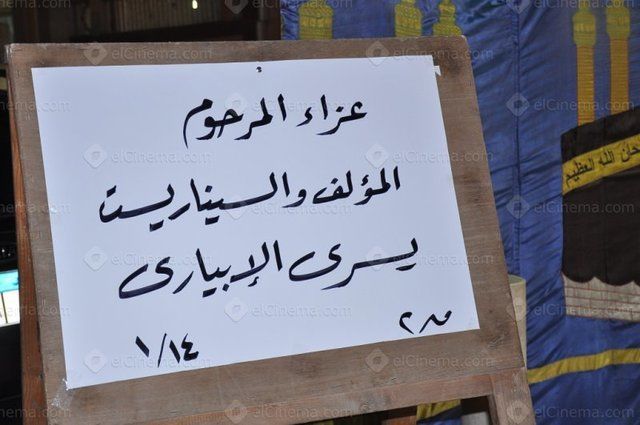 عزاء المرحوم
المؤلف والسيناريست
يسرى الإبيارى
١/١٤
حان الله العظيم
elCinema.com